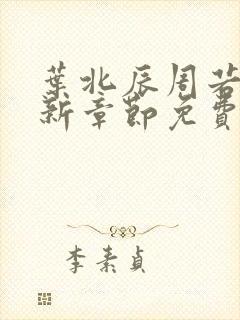 葉北辰周若
新章節免費
李素貞